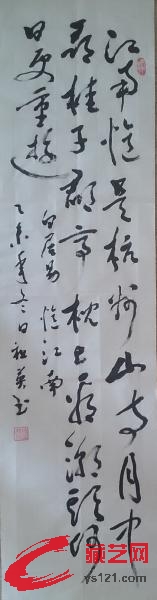 江南忆最忆是杭州山寺月中
寻桂子郡亭枕上看潮头何
日更重游
白居易忆江南
乙未年冬日
藏艺网
ys121.com